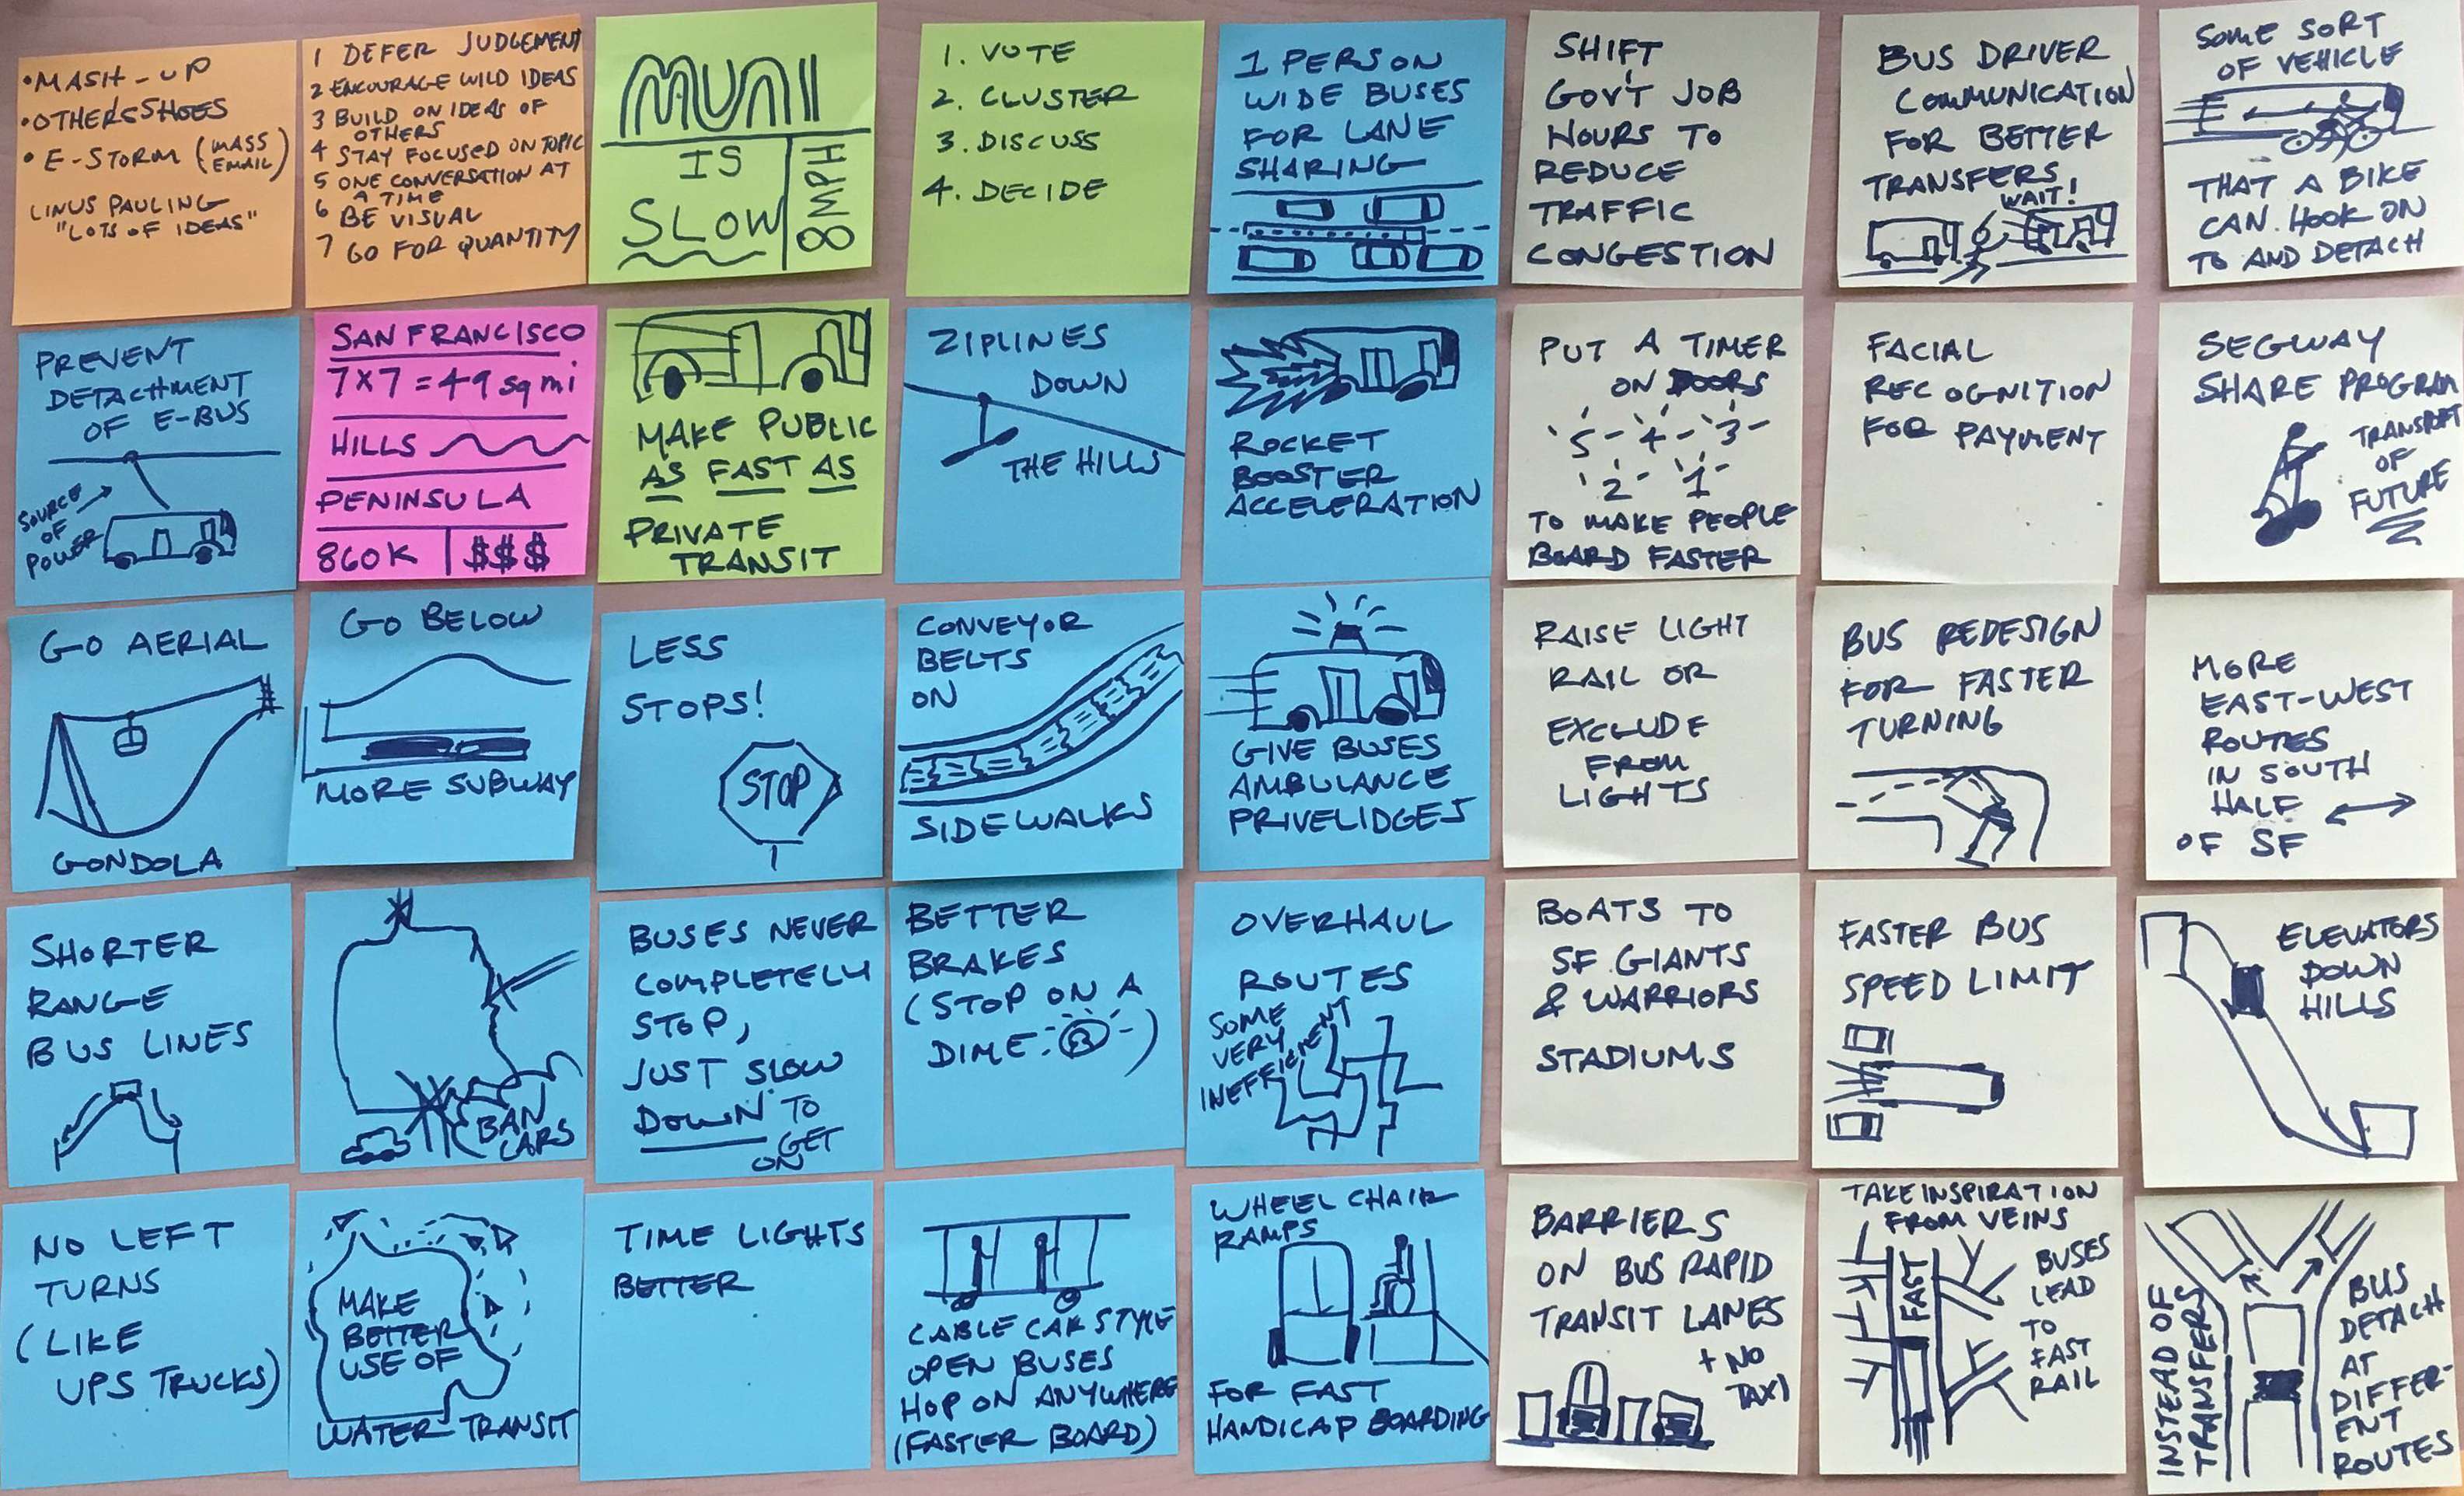 •MASH-UP
•OTHERS SHOES
•E-STORM (MASS
EMAIL)
LINUS PAULING
"LOTS OF IDEAS"
1 DEFER JUDGEMENT
2 ENCOURAGE WILD IDEAS
3 BUILD ON IDEAS OF
OTHERS
4 STAY FOCUSED ON TOPIC
5 ONE CONVERSATION AT
A TIME
6 BE VISUAL
7 GO FOR QUANTITY
MUNI
IS
SLOW
8MPH
1. VOTE
2. CLUSTER
3. DISCUSS
4. DECIDE
1 PERSON
WIDE BUSES
FOR LANE
SHARING
SHIFT
GOV'T JOB
HOURS TO
REDUCE
TRAFFIC
CONGESTION
BUS DRIVER
COMMUNICATION
FOR BETTER
TRANSFERS
WAIT!
SOME SORT
OF VEHICLE
THAT A BIKE
CAN HOOK ON
TO AND DETACH
PREVENT
DETACHMENT
OF E-BUS
SOURCE
OF
POWER
SAN FRANCISCO
7X7 = 49 sq mi
HILLS
PENINSULA
860K $$$
MAKE PUBLIC
AS FAST AS
PRIVATE
TRANSIT
ZIPLINES
DOWN
THE HILLS
ROCKET
BOOSTER
ACCELERATION
PUT A TIMER
ON DOORS
5 - 4 - 3 -
2 - 1 -
TO MAKE PEOPLE
BOARD FASTER
FACIAL
RECOGNITION
FOR PAYMENT
SEGWAY
SHARE PROGRAM
TRANSPORT
OF
FUTURE
GO AERIAL
GONDOLA
GO BELOW
MORE SUBWAY
LESS
STOPS!
STOP
CONVEYOR
BELTS
ON
SIDEWALKS
GIVE BUSES
AMBULANCE
PRIVELIDGES
RAISE LIGHT
RAIL OR
EXCLUDE
FROM
LIGHTS
BUS REDESIGN
FOR FASTER
TURNING
MORE
EAST-WEST
ROUTES
IN SOUTH
HALF
OF SF
SHORTER
RANGE
BUS LINES
BAN
CARS
BUSES NEVER
COMPLETELY
STOP,
JUST SLOW
DOWN TO
GET
ON
BETTER
BRAKES
(STOP ON A
DIME )
OVERHAUL
ROUTES
SOME
VERY
INEFFICIENT
BOATS TO
SF GIANTS
& WARRIORS
STADIUMS
FASTER BUS
SPEED LIMIT
ELEVATORS
DOWN
HILLS
NO LEFT
TURNS
(LIKE
UPS TRUCKS)
MAKE
BETTER
USE OF
WATER TRANSIT
TIME LIGHTS
BETTER
CABLE CAR STYLE
OPEN BUSES
HOP ON ANYWHERE
(FASTER BOARD)
WHEEL CHAIR
RAMPS
FOR FAST
HANDICAP BOARDING
BARRIERS
ON BUS RAPID
TRANSIT LANES
+ NO
TAXI
TAKE INSPIRATION
FROM VEINS
FAST
BUSES
LEAD
TO
FAST
RAIL
INSTEAD OF
TRANSFERS
BUS
DETACH
AT
DIFFER-
ENT
ROUTES